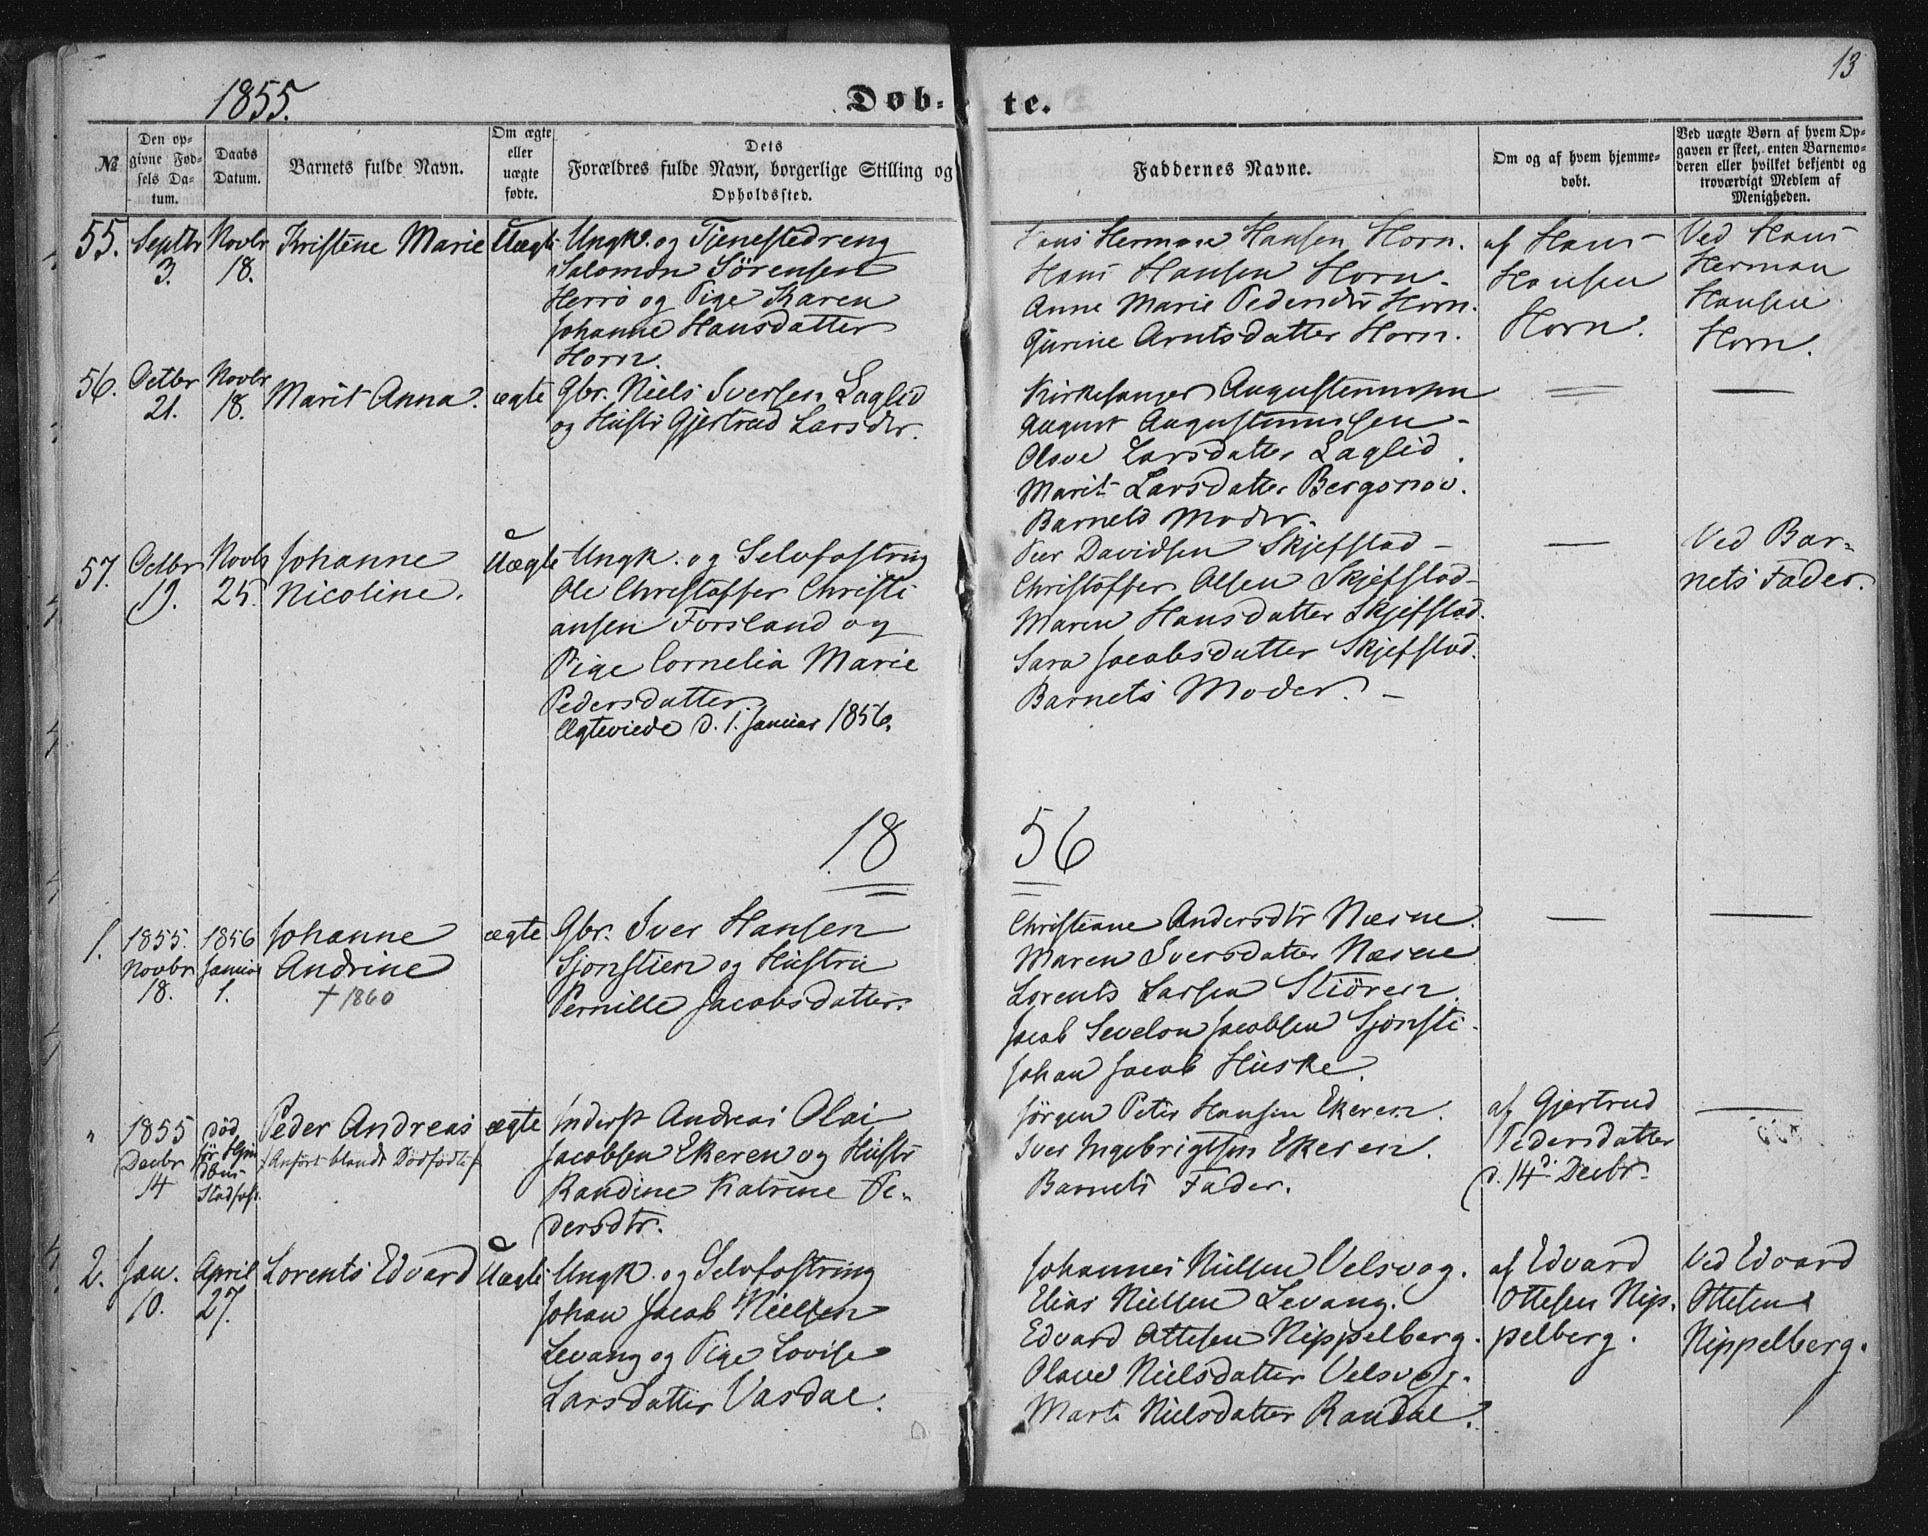 1855.
Døb-
te.
13
№
Den op-
givne Fød-
sels Da-
tum.
Daabs
Datum.
Barnets fulde Navn.
Om ægte
eller
uægte
fødte.
Dets
Forældres fulde Navn, borgerlige Stilling og
Opholdssted.
Faddernes Navne.
Om og af hvem hjemme-
døbt.
Ved uægte Børn af hvem Op-
gaven er skeet, enten Barnemo-
deren eller hvilket bekjendt og
troværdigt Medlem af
Menigheden.
55.
Septbr
3.
Novbr
18.
Kristine Marie
Uægte
Ungk. og Tjenestedreng
Salomon Sørensen
Herrø og Pige Karen
Johanne Hansdatter
Horn.
Hans Herman Hansen Horn.
Hans Hansen Horn.
Anne Marie Pedersdtr Horn.
Gurine Arntsdatter Horn.
af Hans
Hansen
Horn.
Ved Hans
Herman
Hansen
Horn.
56.
Octbr
21.
Novbr
18.
Marit Anna.
ægte
Gbr. Niels Iversen Laglid
og Hustr Gjertrud Larsdtr.
Kirkesanger Augustinussen
August Augustinussen -
Olave Larsdatter Laglid.
Marit Larsdatter Bergsnov.
Barnets Moder.
=
—
57.
Octbr
19.
Novbr
25.
Johanne
Nicoline.
Uægte
Ungk. og Selvfostring
Ole Christoffer Christi
ansen Forsland og
Pige Cornelia Marie
Pedersdatter.
Ægteviede d. 1. Januar 1856.
Peer Davidsen Skjefstad -
Christoffer Olsen Skjefstad -
Maren Hansdatter Skjefstad.
Sara Jacobsdatter Skjefstad.
Barnets Moder. -
—
Ved Bar-
nets Fader.
18
56
1.
1855.
Novbr
18.
1856
Januar
1.
Johanne
Andrine
† 1860
ægte
Gbr. Iver Hansen
Sjonstien og Hustru
Pernille Jacobsdatter.
Christiane Andersdtr Næsne.
Maren Iversdatter Næsne
Lorents Larsen Stiøren.
Jacob Sevelon Jacobsen Sjonsti.
Johan Jacob Huske.
—
—
"
1855
Decbr
14
død
før Hjem
døbns
Stadfæst.
Peder Andreas
/: Anført blandt Dødfødte :/
ægte
Inderst Andreas Olai
Jacobsen Ekeren og Hustr
Randine Katrine Pe-
dersdtr.
Jørgen Peter Hansen Ekeren.
Iver Ingebrigtsen Ekeren.
Barnets Fader.
af Gjertrud
Pedersdatter
d. 14d. Decbr.
—
2.
Jan.
10.
April
27.
Lorents Edvard
Uægte
Ungk. og Selvfostring
Johan Jacob Nielsen
Levang og Pige Lovise
Larsdatter Vasdal.
Johannes Nielsen Velsvag.
Elias Nielsen Levang.
Edvard Ottesen Nippelberg.
Olave Nielsdatter Velsvag.
Marte Nielsdatter Randal.
af Edvard
Ottesen Nip-
pelberg.
Ved Edvard
Ottesen
Nippelberg.